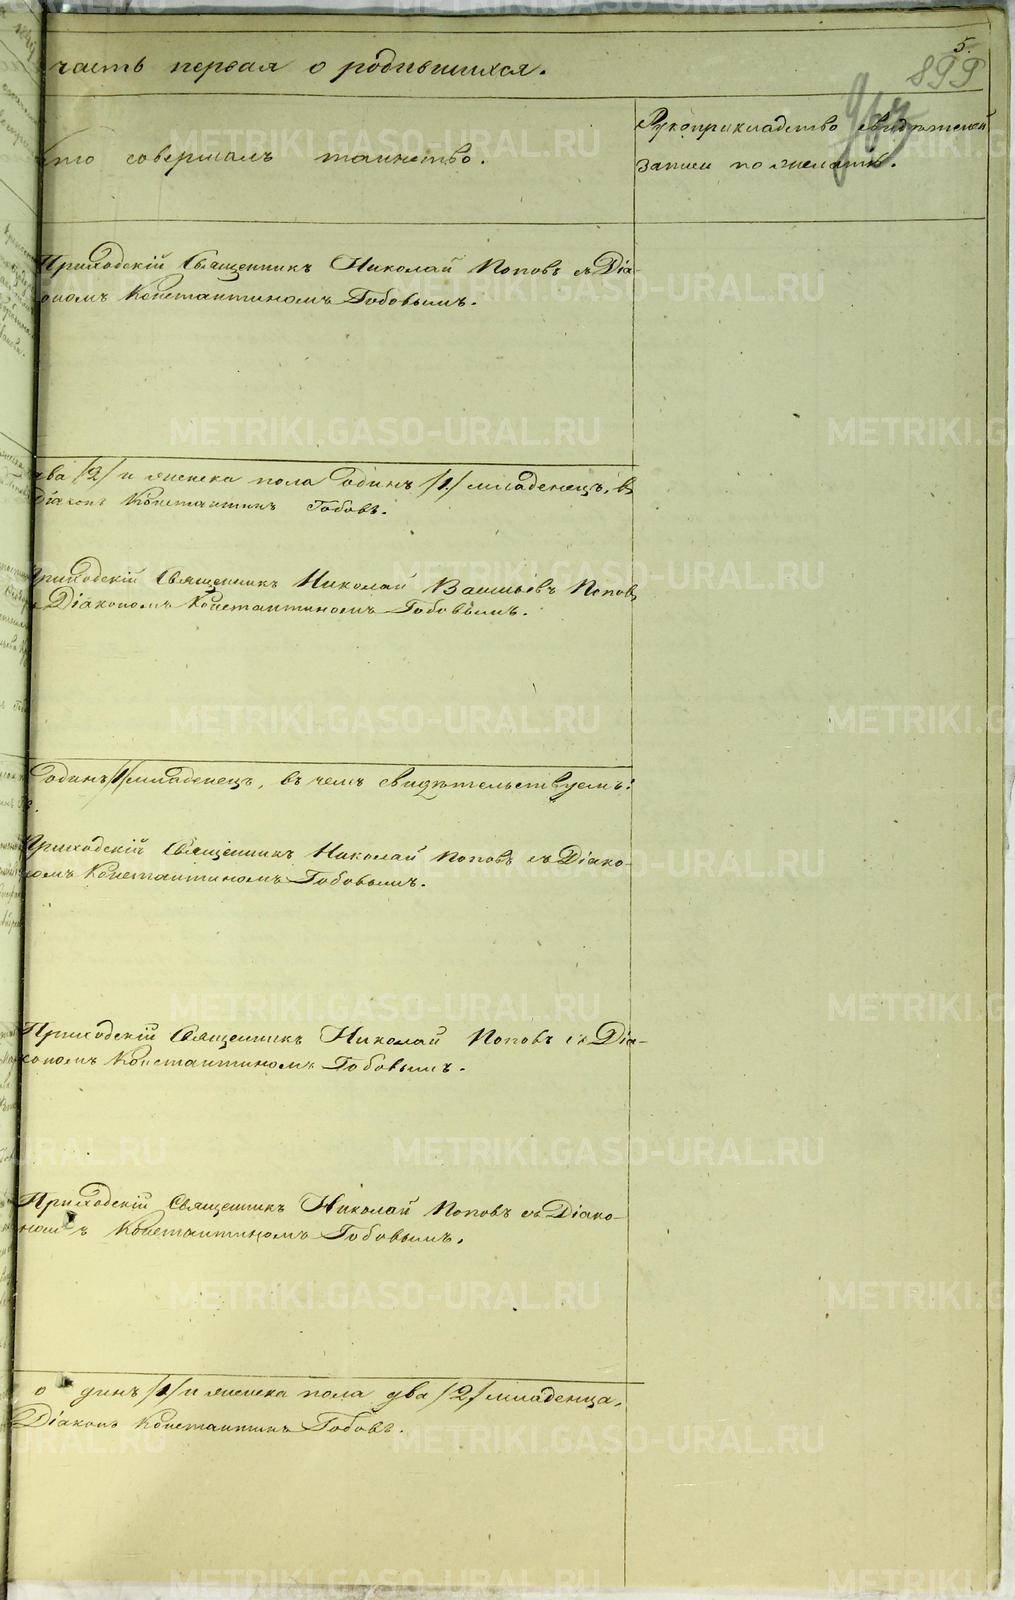 5.
899
963
часть первая о родившихся.
Кто совершалъ таинство.
Рукоприкладство свидѣтелей
записи по желанію.
Приходскій Священникъ Николай Поповъ съ Діа-
кономъ Константиномъ Гобовымъ.
два /2/ и женска пола одинъ /1/ младенецъ, въ
Діаконъ Константинъ Гобовъ.
Приходскій Священникъ Николай Васильевъ Поповъ
Діакономъ Константиномъ Гобовымъ.
одинъ /1/ младенецъ, въ чемъ свидѣтельствуемъ:
Приходскій Священникъ Николай Поповъ съ Діако-
номъ Константиномъ Гобовымъ.
Приходскій Священникъ Николай Поповъ съ Діа-
кономъ Константиномъ Гобовымъ.
Приходскій Священникъ Николай Поповъ съ Діако-
номъ Константиномъ Гобовымъ.
одинъ /1/ и женска пола два /2/ младенца,
Діаконъ Константинъ Гобовъ.
METRIKI.GASO-URAL.RU